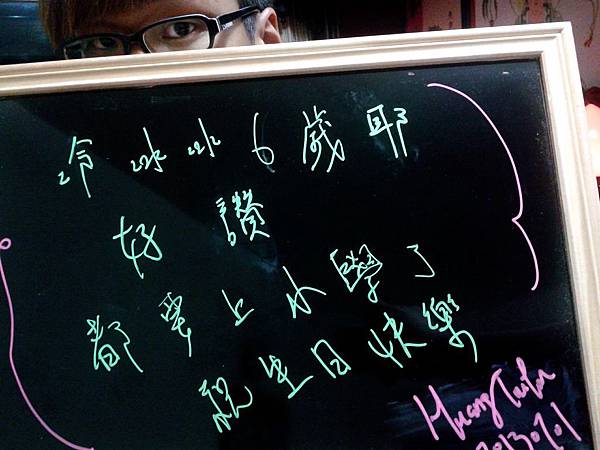 冷冰冰6歲耶
好讚
都要上小學了
祝生日快樂
Huang
20130701